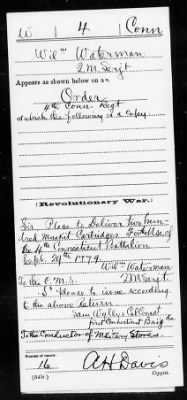 W | 4 | Conn
Wilm Waterman
Q.M. Serjt
Appears as shown below on an
Order
4th Conn. Regt
of which the following is a copy.
(Revolutionary War.)
Sir Please to Deliver two hun-
dred Musket Cartridges for the use of
the 4th Connecticut Battalion
Sept. 29th 1779
Wilm Waterman
QM Serjt
To the C. M. S.
Sr Please to issue according
to the above return
Sam Wyllys Col Comdt
first Connecticut Brig de
To the Conductor of Military Stores
Number of record:
16
A H Davis
(546)
Copyist.